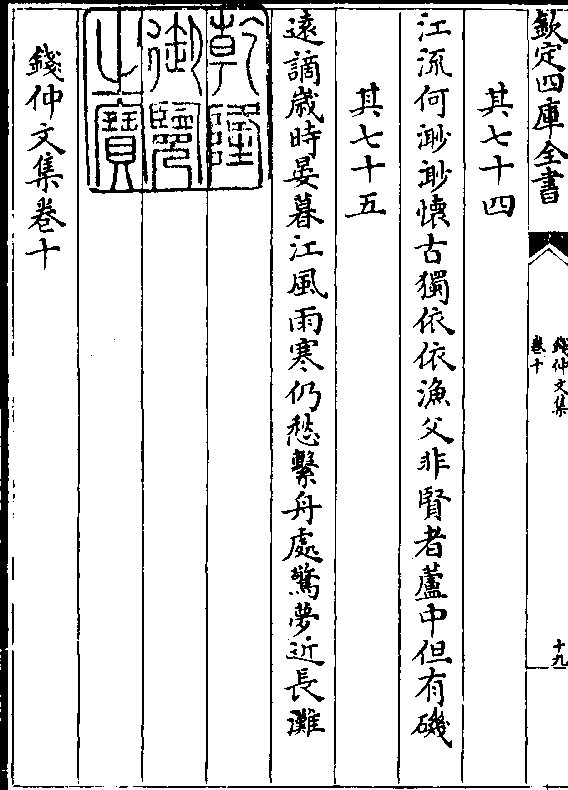 欽定四庫全書
錢仲文集
卷十
十九
其七十四
江流何渺渺懷古獨依依漁父非賢者蘆中但有磯
其七十五
遠謫歳時晏暮江風雨寒仍愁繫舟處驚夢近長灘
乾隆
御覽
之寶
錢仲文集卷十